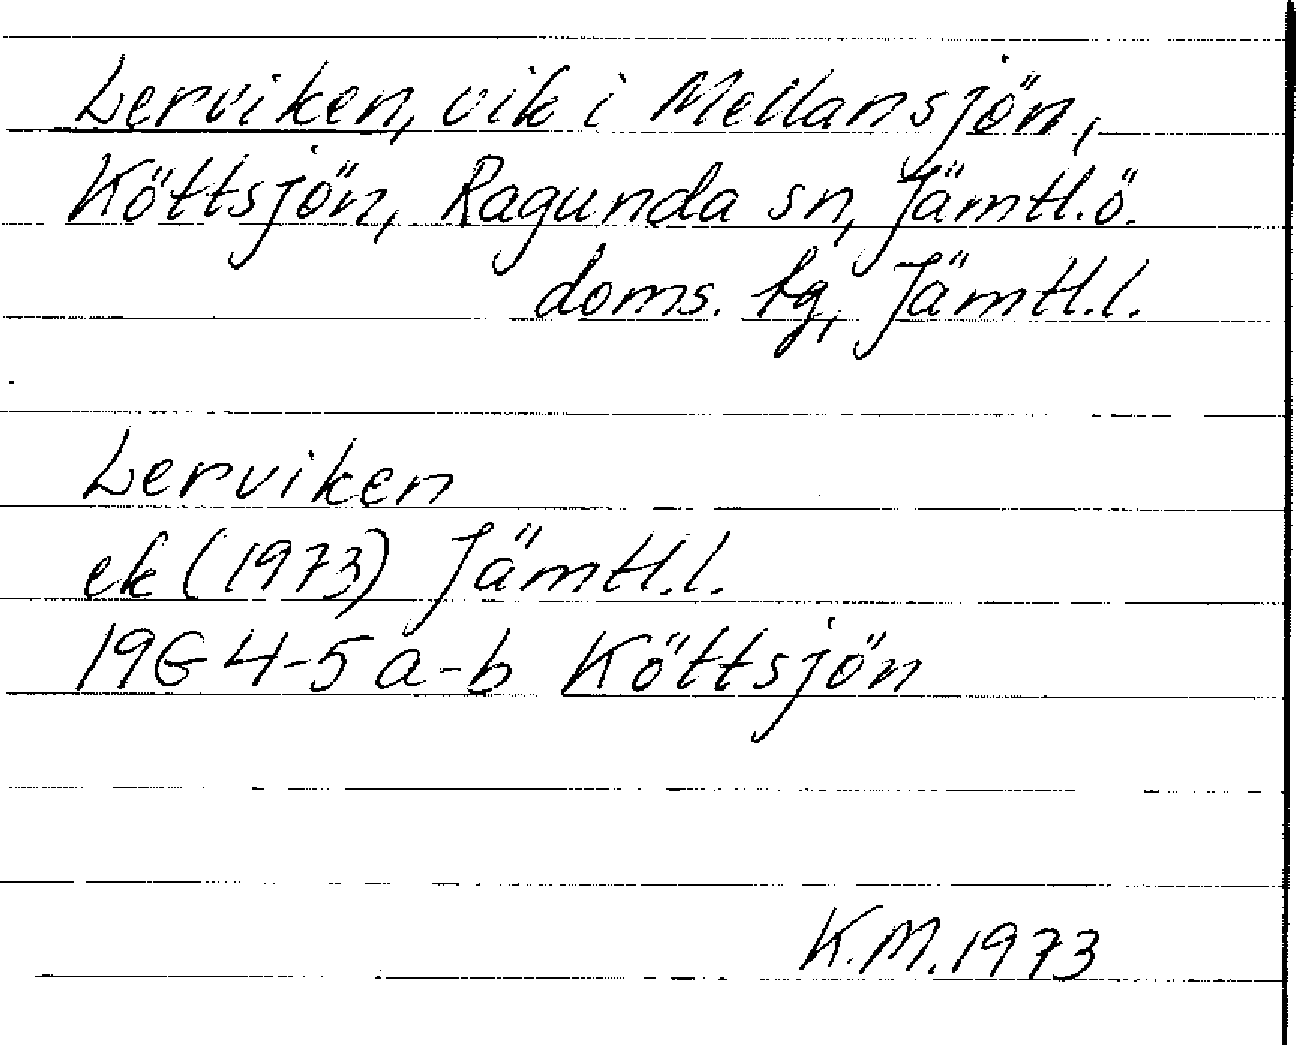 Lerviken, vik i Mellansjön,
Köttsjön, Ragunda sn, Jämtl.ö.
doms. tg, Jämtl.l.
Lerviken
ek (1973) Jämtl.l.
19G 4-5 a-b Köttsjön
K.M. 1973